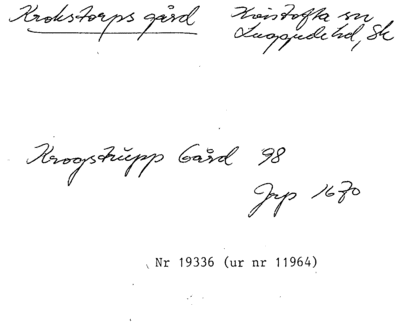 Krokstorps gård Kvistofta sn
Luggude hd, Sk
Krogstrupp Gård 98
Jrp 1670
Nr 19336 (ur nr 11964)